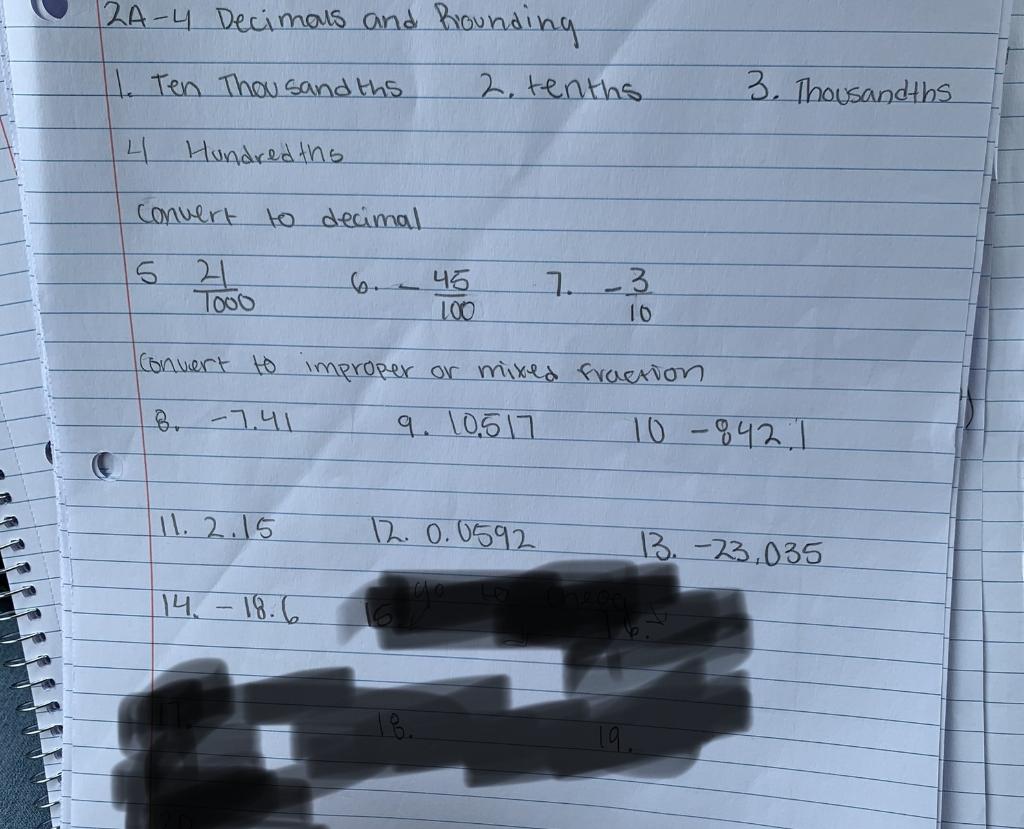 2A-4 Decimals and Rounding
1. Ten Thousandths 2. tenths 3. Thousandths
4 Hundredths
convert to decimal
5 21/1000 6. - 45/100 7. - 3/10
convert to improper or mixed fraction
8. -7.41 9. 10.517 10 -842.1
11. 2.15 12. 0.0592 13. -23.035
14. -18.6 15. 16.
17. 18. 19.
20